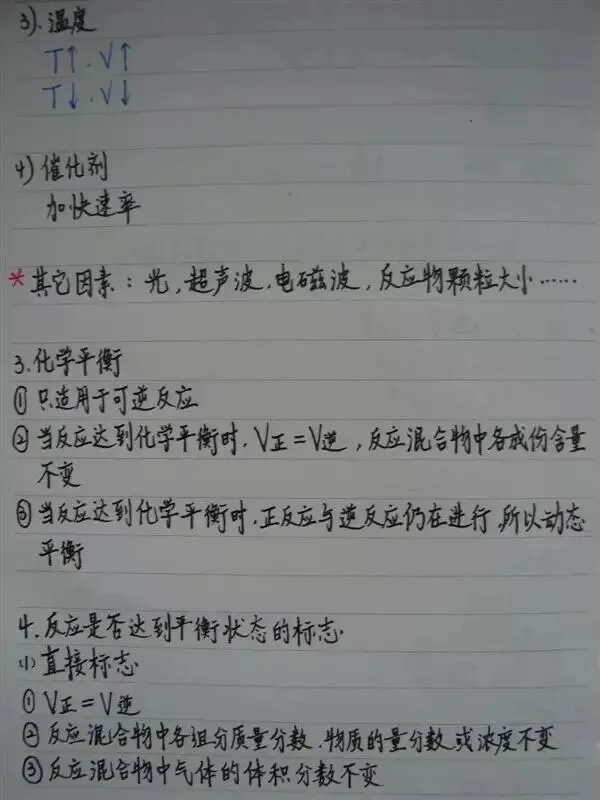 3). 温度
T↑. V↑
T↓. V↓
4) 催化剂
加快速率
* 其它因素：光, 超声波, 电磁波, 反应物颗粒大小……
3. 化学平衡
① 只适用于可逆反应
② 当反应达到化学平衡时. V正=V逆, 反应混合物中各成份含量
不变
③ 当反应达到化学平衡时. 正反应与逆反应仍在进行, 所以动态
平衡
4. 反应是否达到平衡状态的标志.
(1) 直接标志
① V正=V逆
② 反应混合物中各组分质量分数. 物质的量分数或浓度不变
③ 反应混合物中气体的体积分数不变